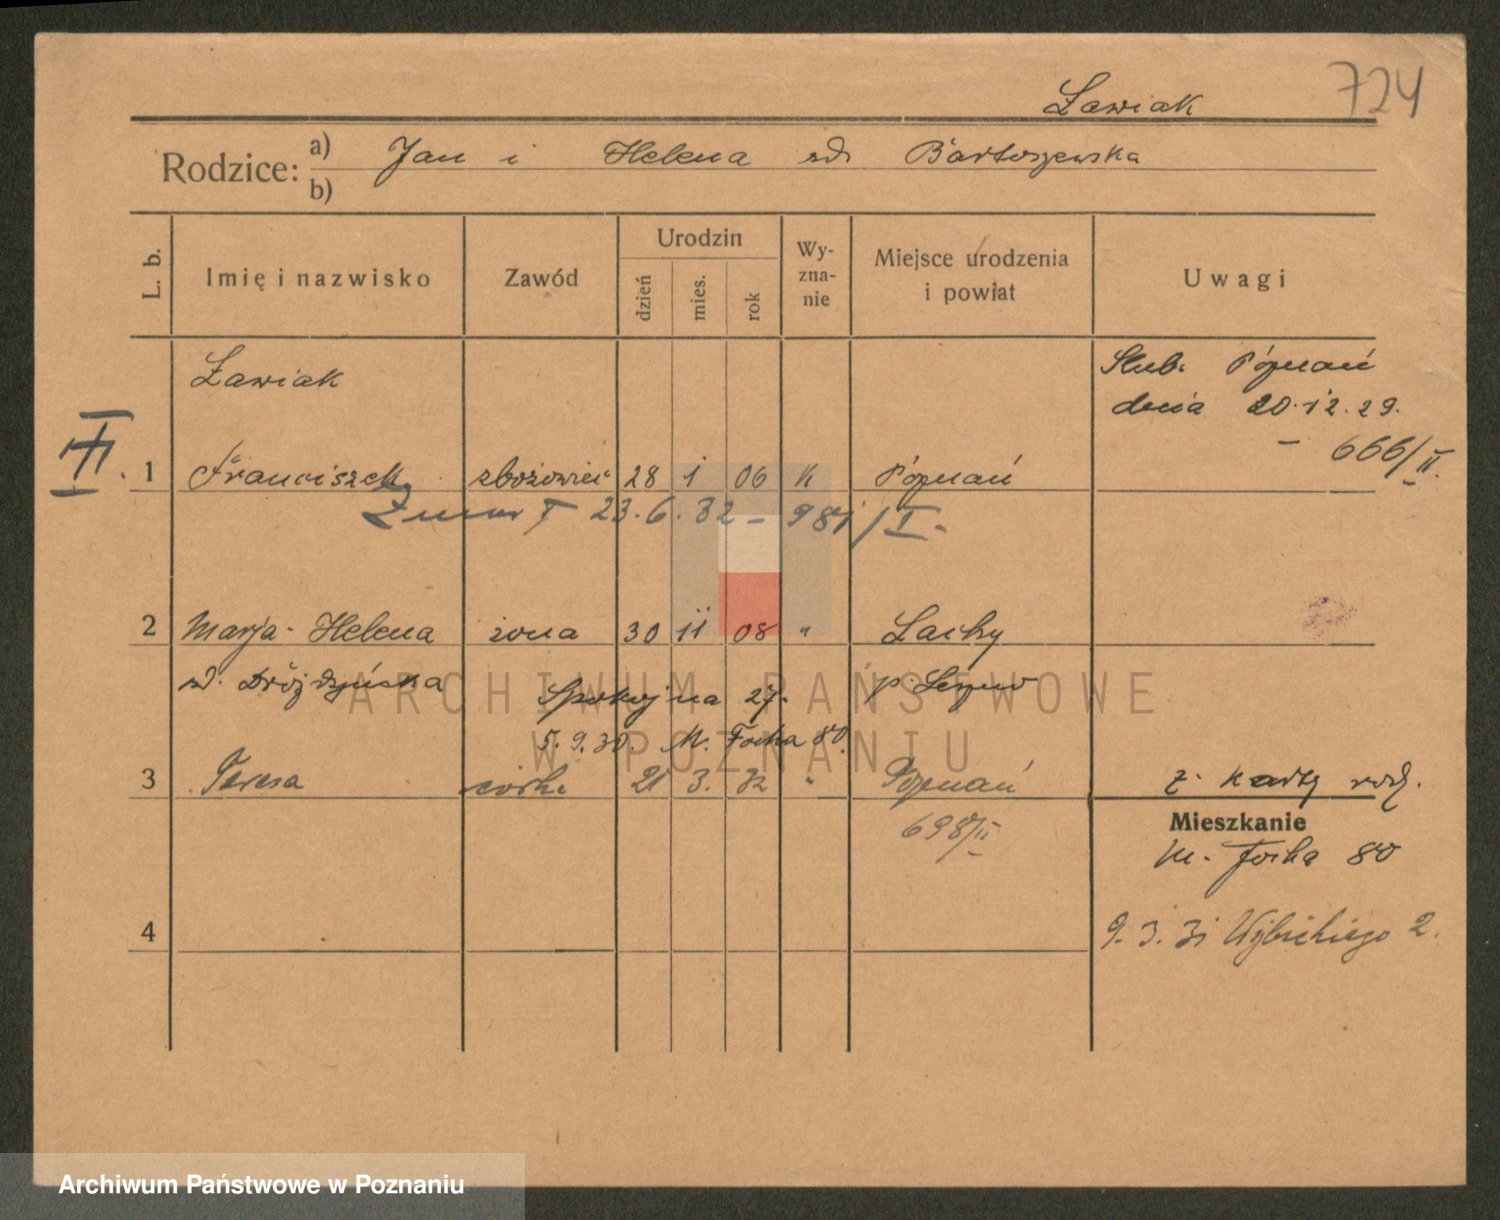 Ławiak 724
Rodzice: a) Jan i Helena zd. Bartoszewska
b)
L. b. Imię i nazwisko Zawód Urodzin dzień mies. rok Wy-zna-nie Miejsce urodzenia i powiat Uwagi
Ławiak Ślub. Poznań
dnia 20.12.29.
– 666/II.
III. 1 Franciszek zbożowiec 28 1 06 k Poznań
Zmarł 23.6.32 – 981/I.
2 Marja-Helena żona 30 11 08 " Lachy
zd. Dróżdżyńska p. Leszno
Spokojna 27.
5.9.30. M. Focha 80.
3 Teresa córka 21 3. 32 " Poznań z karty rodz.
698/II
Mieszkanie
M. Focha 80
4 9.3.31 Wybickiego 2.
ARCHIWUM PAŃSTWOWE
W POZNANIU
Archiwum Państwowe w Poznaniu